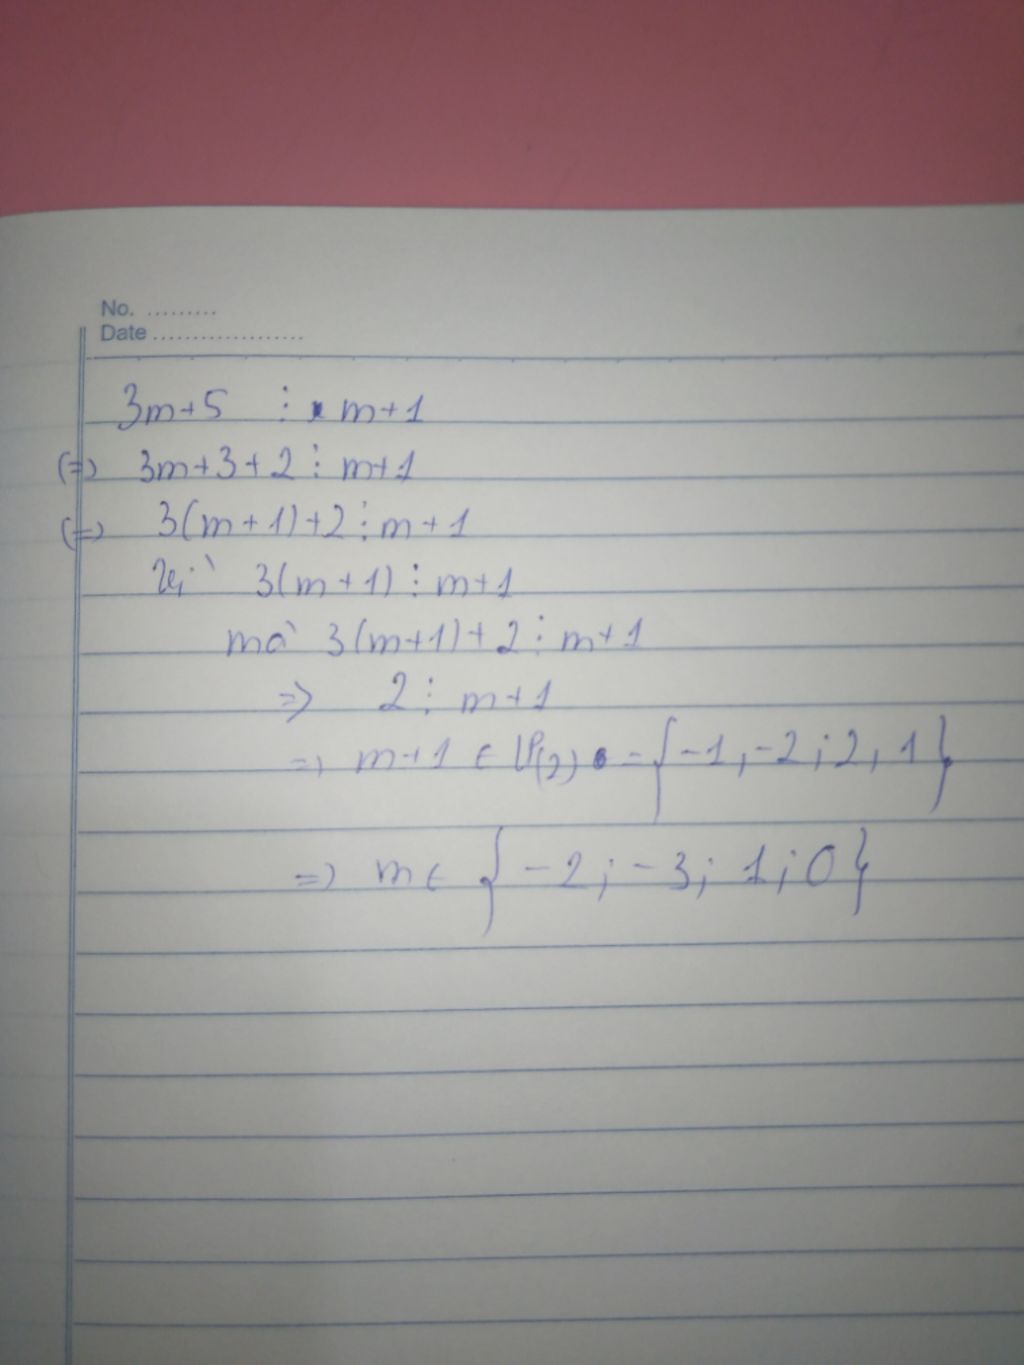 No. .........
Date ...................
3m+5 ⋮ m+1
(=) 3m+3+2 ⋮ m+1
(=) 3(m+1)+2 ⋮ m+1
Vì 3(m+1) ⋮ m+1
mà 3(m+1)+2 ⋮ m+1
=> 2 ⋮ m+1
=> m+1 ∈ Ư(2) = {-1, -2; 2, 1}
=> m ∈ {-2; -3; 1; 0}